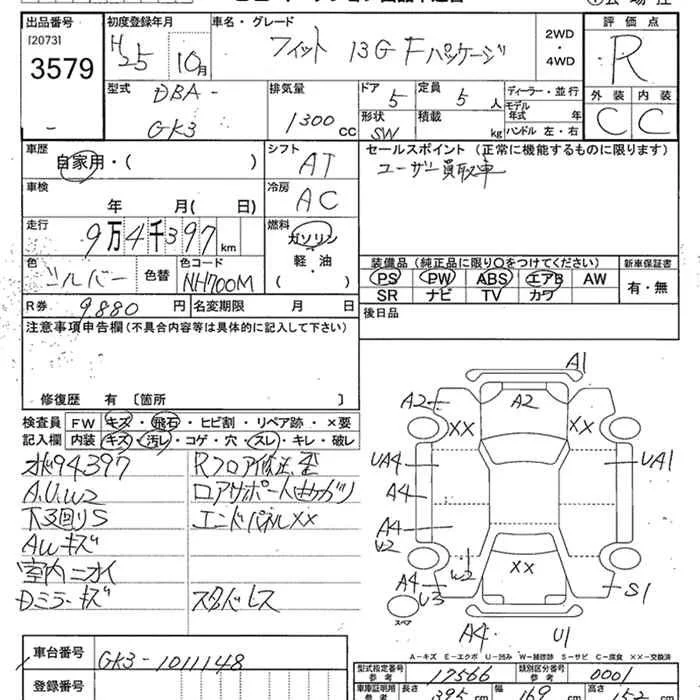 出品番号
[2073]
3579
初度登録年月
H25 10月
車名・グレード
フィット 13G Fパッケージ
2WD
・
4WD
評価点
R
外装 内装
C C
型式
DBA-
GK3
排気量
1300 cc
ドア 5
定員 5 人
形状 SW
積載 kg
ディーラー・並行
モデル年式 年
ハンドル 左・右
車歴
自家用・( )
シフト
AT
セールスポイント(正常に機能するものに限ります)
ユーザー買取車
車検
年 月( 日)
冷房
AC
走行
9万4千397 km
燃料
ガソリン
軽・油
( )
色
シルバー
色替
色コード
NH700M
装備品(純正品に限り○をつけてください)
新車保証書
PS PW ABS エアB AW
有・無
SR ナビ TV カワ
R券 9880 円
名変期限 月 日
後日品
注意事項申告欄(不具合内容等は具体的に記入して下さい)
修復歴 有〔箇所 〕
検査員
記入欄
FW キズ・飛石・ヒビ割・リペア跡・×要
内装 キズ・汚レ・コゲ・穴・スレ・キレ・破レ
メ94397
A.U.W2
下3回りS
AWキズ
室内ニオイ
Dミラーキズ
Rフロア修正歪
ロアサポート曲がり
エンドパネルXX
スタッドレス
A1
A2
A2
XX
XX
UA4
UA1
A4
A4
U2
W2
XX
A4
U3
S1
スペア
A4
U1
A-キズ E-エクボ U-凹み W-補修跡 S-サビ C-腐食 XX-交換済
車台番号
GK3-1011148
登録番号
型式指定番号
参考
17566
類別区分番号
参考
0001
車庫証明用
参考
長さ 395 cm
幅 169 cm
高さ 152 cm